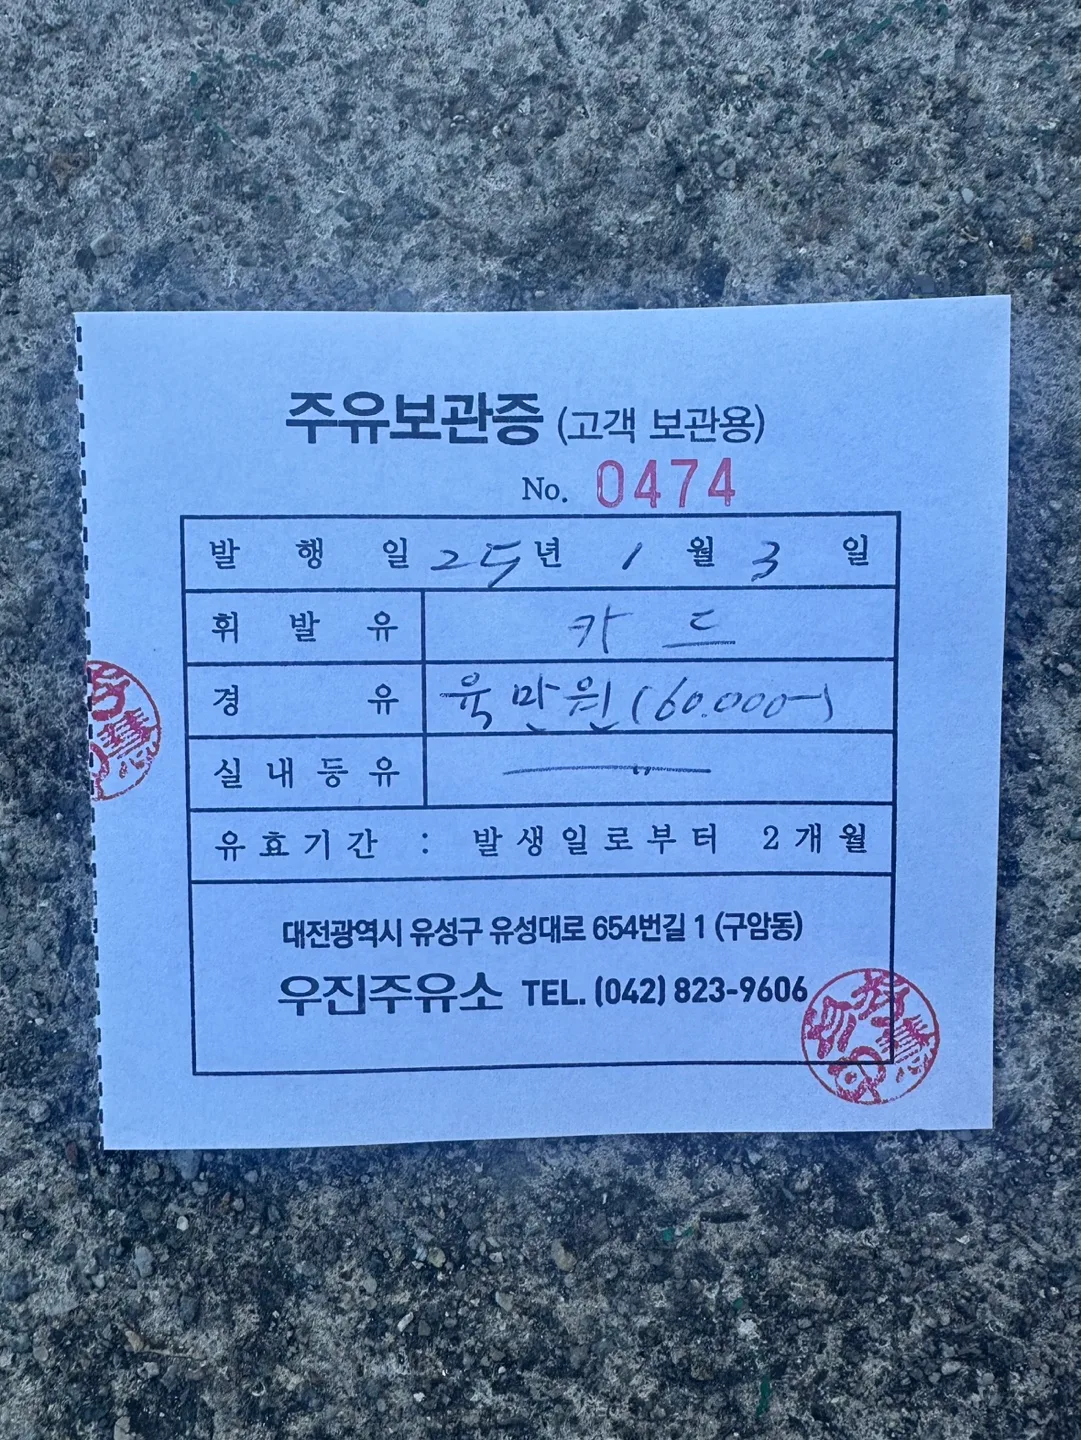 주유보관증 (고객 보관용)
No. 0474
발 행 일 25년 1월 3일
휘 발 유 카드
경 유 육만원(60.000-)
실내등유 〃
유효기간 : 발생일로부터 2개월
대전광역시 유성구 유성대로 654번길 1 (구암동)
우진주유소 TEL. (042) 823-9606